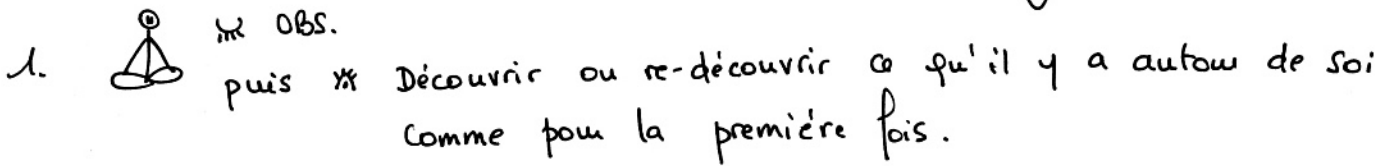 1. OBS.
puis Découvrir ou re-découvrir ce qu'il y a autour de soi
comme pour la première fois.